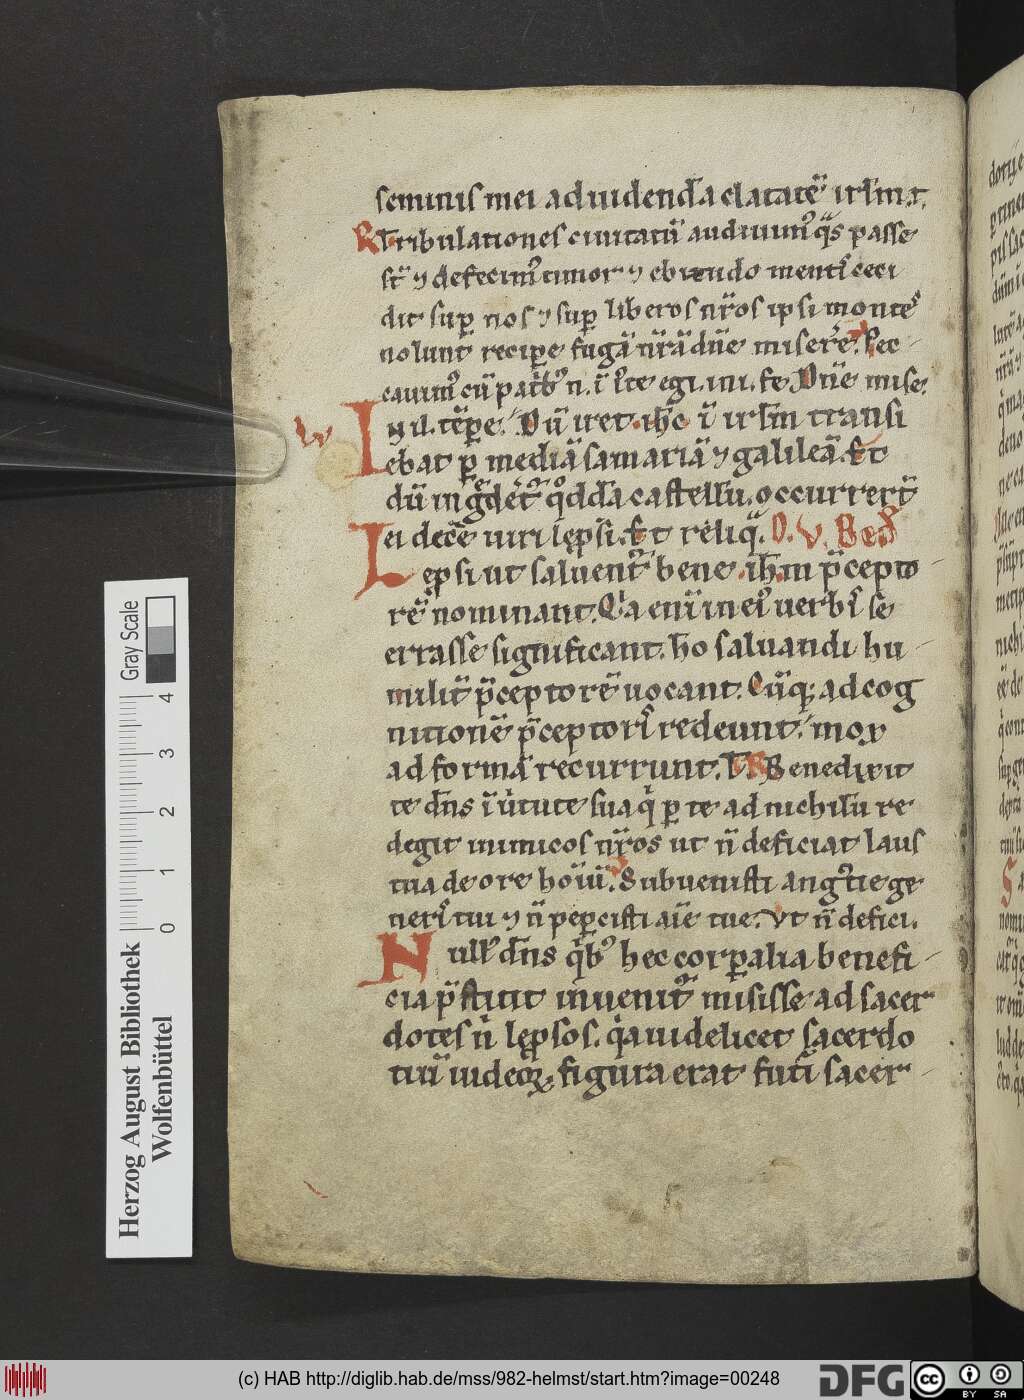 seminis mei ad uidenda clatatē irl̄m.t.
R̄ Tribulationes ciuitatū audiuim' q̄s passe
st̄ ⁊ defecim' timor ⁊ ebitudo menti' ceci
dit sup̄ nos ⁊ sup̄ liberos nr̄os ipsi monte'
nolunt recip̄e fugā nr̄ā dn̄e misere'. Pec
cauim' cū patb' n. ī i'te egi. ini. fe Dn̄e mise.
W In il. tēp̄e. Dū iret ih̄c ī irl̄m transi
ebat p̄ mediā samariā ⁊ galileā. Et
dū ingdēt' qoddā castellū. occurrert̄
ei decē uiri lep̄si. Et reliq̄. O. V. Bed̄
Lepsi ut saluent' bene ih̄m p̄cepto
rē nominant. Qia enī in ei' uerbi' se
errasse significant. ho saluandi hu
milit̄ p̄ceptorē uocant. Cūq; ad cog
nitionē p̄ceptori' redeunt. mox
ad formā recurrunt. T. R̄ Benedixit
te dn̄s ī ut̄ute sua qi p̄ te ad nichilū re
degit inimicos nr̄os ut n̄ deficiat laus
tua de ore hoīū. Subuenisti angt'ie ge
neri' tui ⁊ n̄ pep̄cisti aīe tue. Vt n̄ defici.
Null' dn̄s qib' hec corp̄alia benefi
cia p̄stitit inuenit' misisse ad sacer
dotes n̄ lep̄sos. qia uidelicet sacerdo
tiū iudeoꝝ figura erat futi' sacer
Herzog August Bibliothek
Wolfenbüttel
0 1 2 3 4
Gray Scale
(c) HAB http://diglib.hab.de/mss/982-helmst/start.htm?image=00248
DFG
cc BY SA